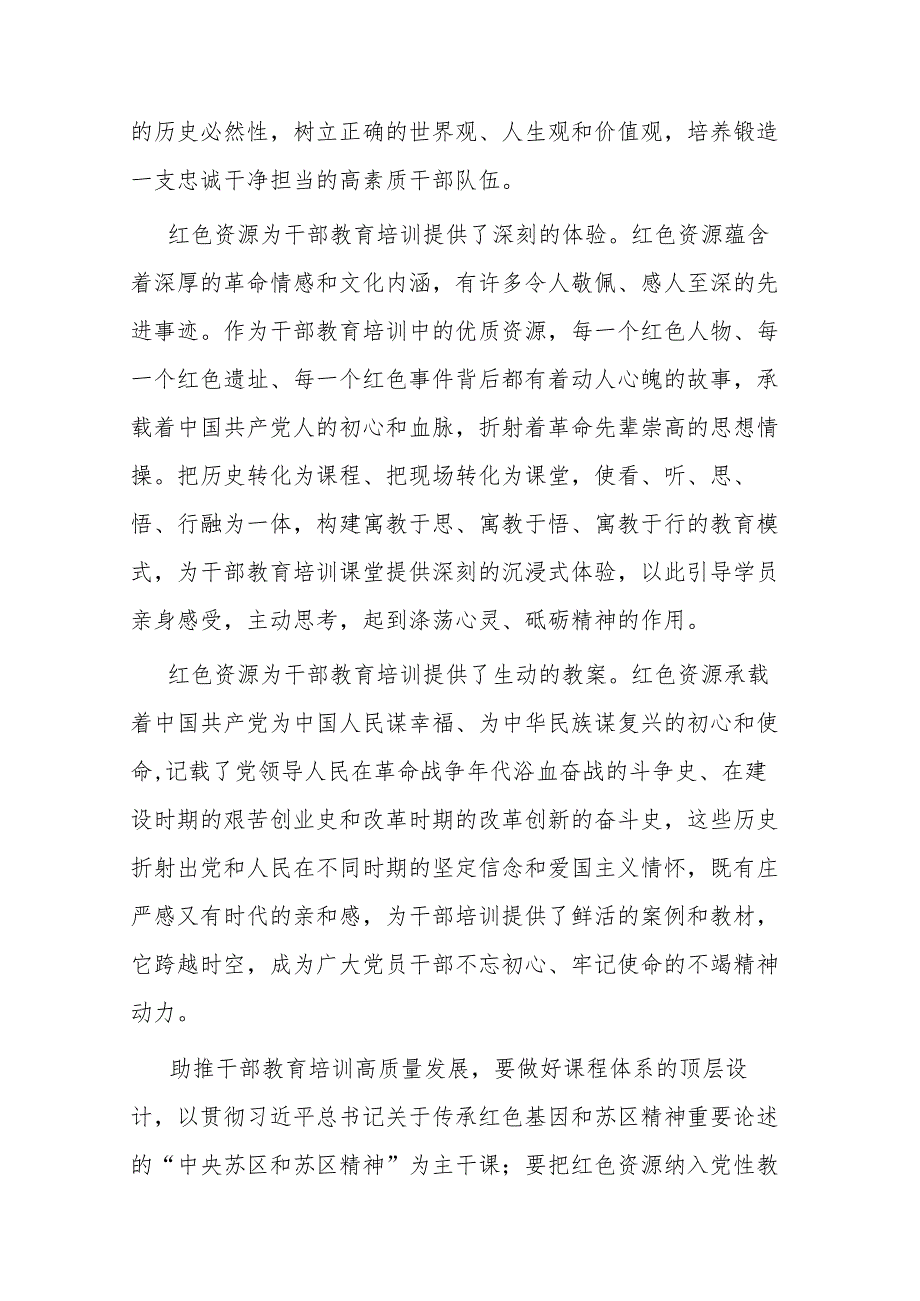 的历史必然性，树立正确的世界观、人生观和价值观，培养锻造
一支忠诚干净担当的高素质干部队伍。
红色资源为干部教育培训提供了深刻的体验。红色资源蕴含
着深厚的革命情感和文化内涵，有许多令人敬佩、感人至深的先
进事迹。作为干部教育培训中的优质资源，每一个红色人物、每
一个红色遗址、每一个红色事件背后都有着动人心魄的故事，承
载着中国共产党人的初心和血脉，折射着革命先辈崇高的思想情
操。把历史转化为课程、把现场转化为课堂，使看、听、思、
悟、行融为一体，构建寓教于思、寓教于悟、寓教于行的教育模
式，为干部教育培训课堂提供深刻的沉浸式体验，以此引导学员
亲身感受，主动思考，起到涤荡心灵、砥砺精神的作用。
红色资源为干部教育培训提供了生动的教案。红色资源承载
着中国共产党为中国人民谋幸福、为中华民族谋复兴的初心和使
命,记载了党领导人民在革命战争年代浴血奋战的斗争史、在建
设时期的艰苦创业史和改革时期的改革创新的奋斗史，这些历史
折射出党和人民在不同时期的坚定信念和爱国主义情怀，既有庄
严感又有时代的亲和感，为干部培训提供了鲜活的案例和教材，
它跨越时空，成为广大党员干部不忘初心、牢记使命的不竭精神
动力。
助推干部教育培训高质量发展，要做好课程体系的顶层设
计，以贯彻习近平总书记关于传承红色基因和苏区精神重要论述
的“中央苏区和苏区精神”为主干课；要把红色资源纳入党性教